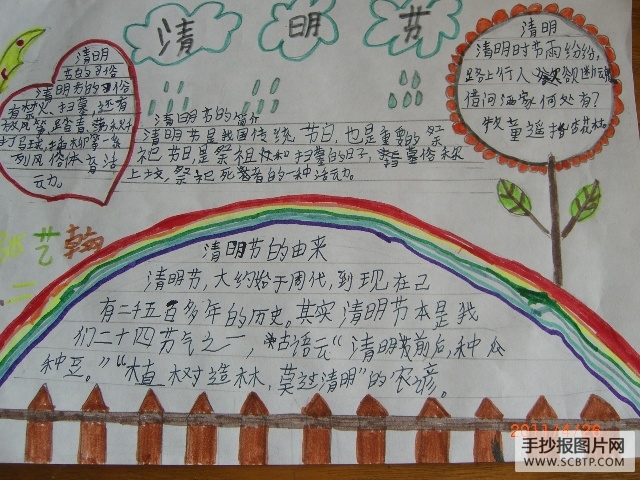 清 明 节
清明
节的习俗
清明节的习俗
有禁火、扫墓，还有
放风筝踏青、荡秋千
打马球、插柳等一系
列风俗体育活
动。
清明节的简介
清明节是我国传统节日，也是重要的祭
祀节日，是祭祖和扫墓的日子，扫墓俗称
上坟，祭祀死者的一种活动。
清明
清明时节雨纷纷，
路上行人欲断魂
借问酒家何处有？
牧童遥指杏花村
艺翰
二
清明节的由来
清明节，大约始于周代，到现在已
有二千五百多年的历史。其实清明节本是我
们二十四节气之一，古语云“清明前后，种瓜
种豆。”“植树造林，莫过清明”的农谚。
2011/4/26
手抄报图片网
WWW.SCBTP.COM